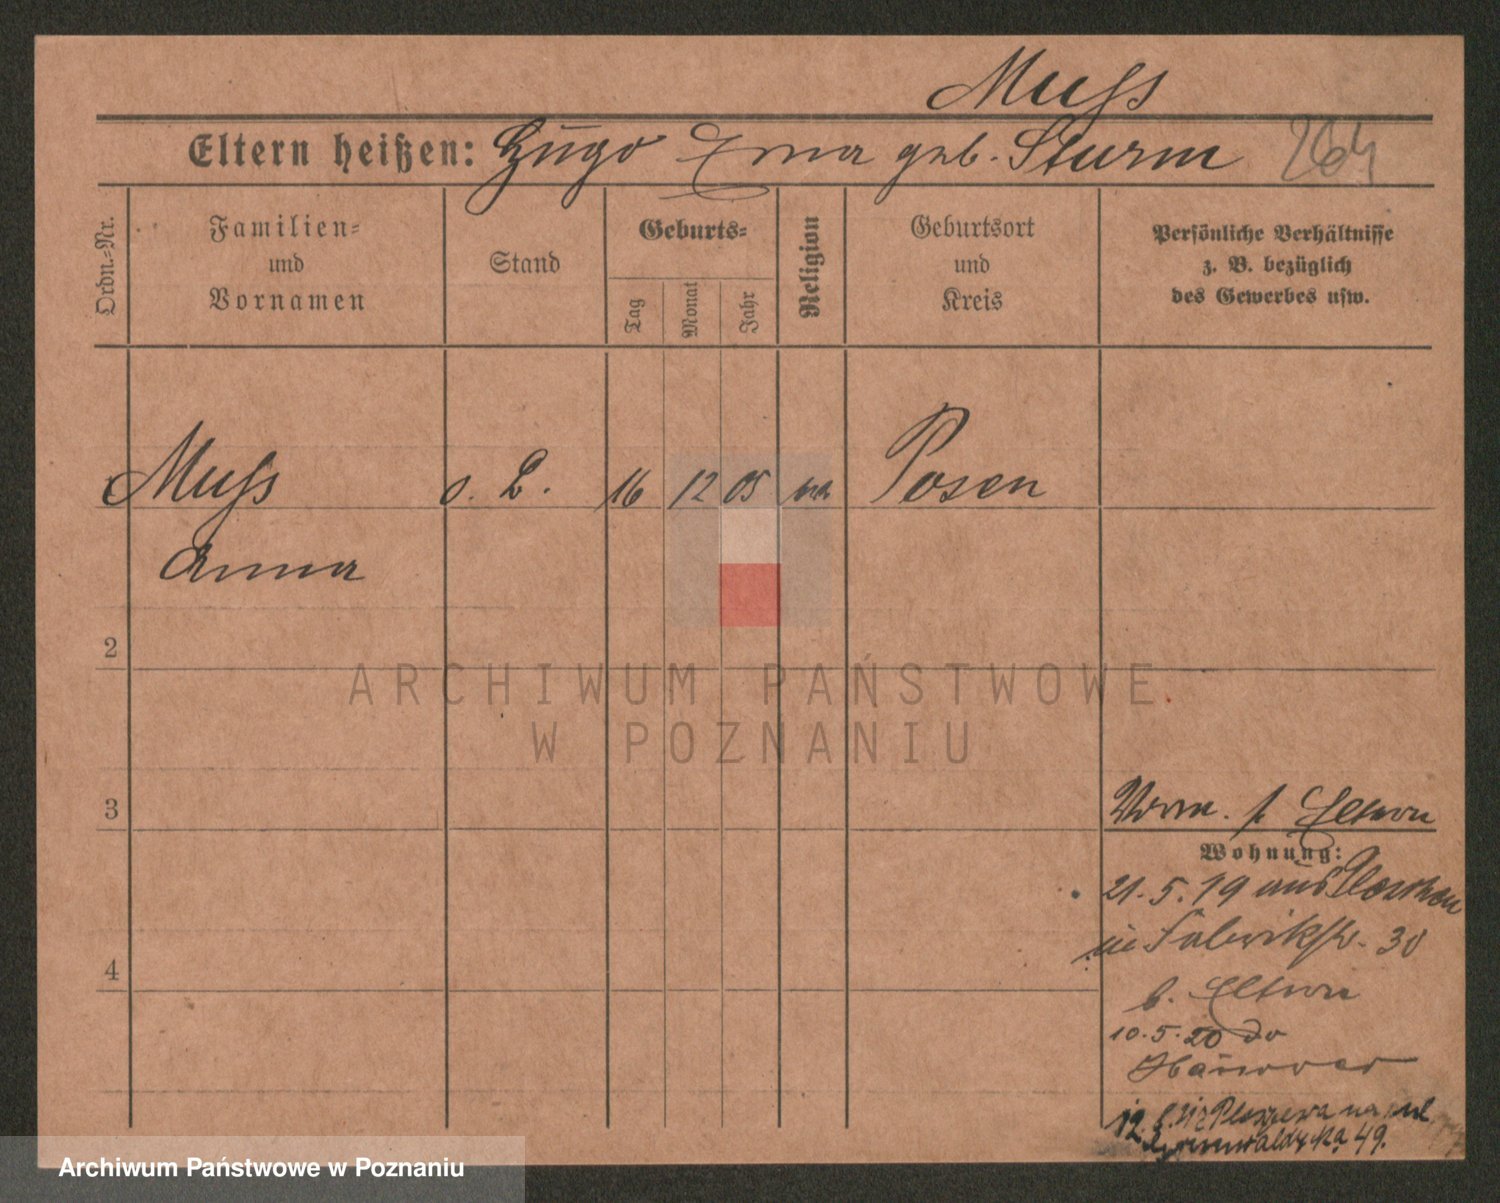 Muſs
Eltern heißen: Hugo Erna geb. Sturm 264
Ordn.-Nr.
Familien-
und
Vornamen
Stand
Geburts-
Tag
Monat
Jahr
Religion
Geburtsort
und
Kreis
Persönliche Verhältnisse
z. B. bezüglich
des Gewerbes usw.
Muſs o. B. 16 12 05 Posen
Anna
2
3
4
Eltern
Wohnung:
21.5.19 aus Pleschen
in Fabrikstr. 30
b. Eltern
10.5.20 do
Hannover
12. z Pleszewa na ul
Grunwaldzka 49.
ARCHIWUM PAŃSTWOWE
W POZNANIU
Archiwum Państwowe w Poznaniu